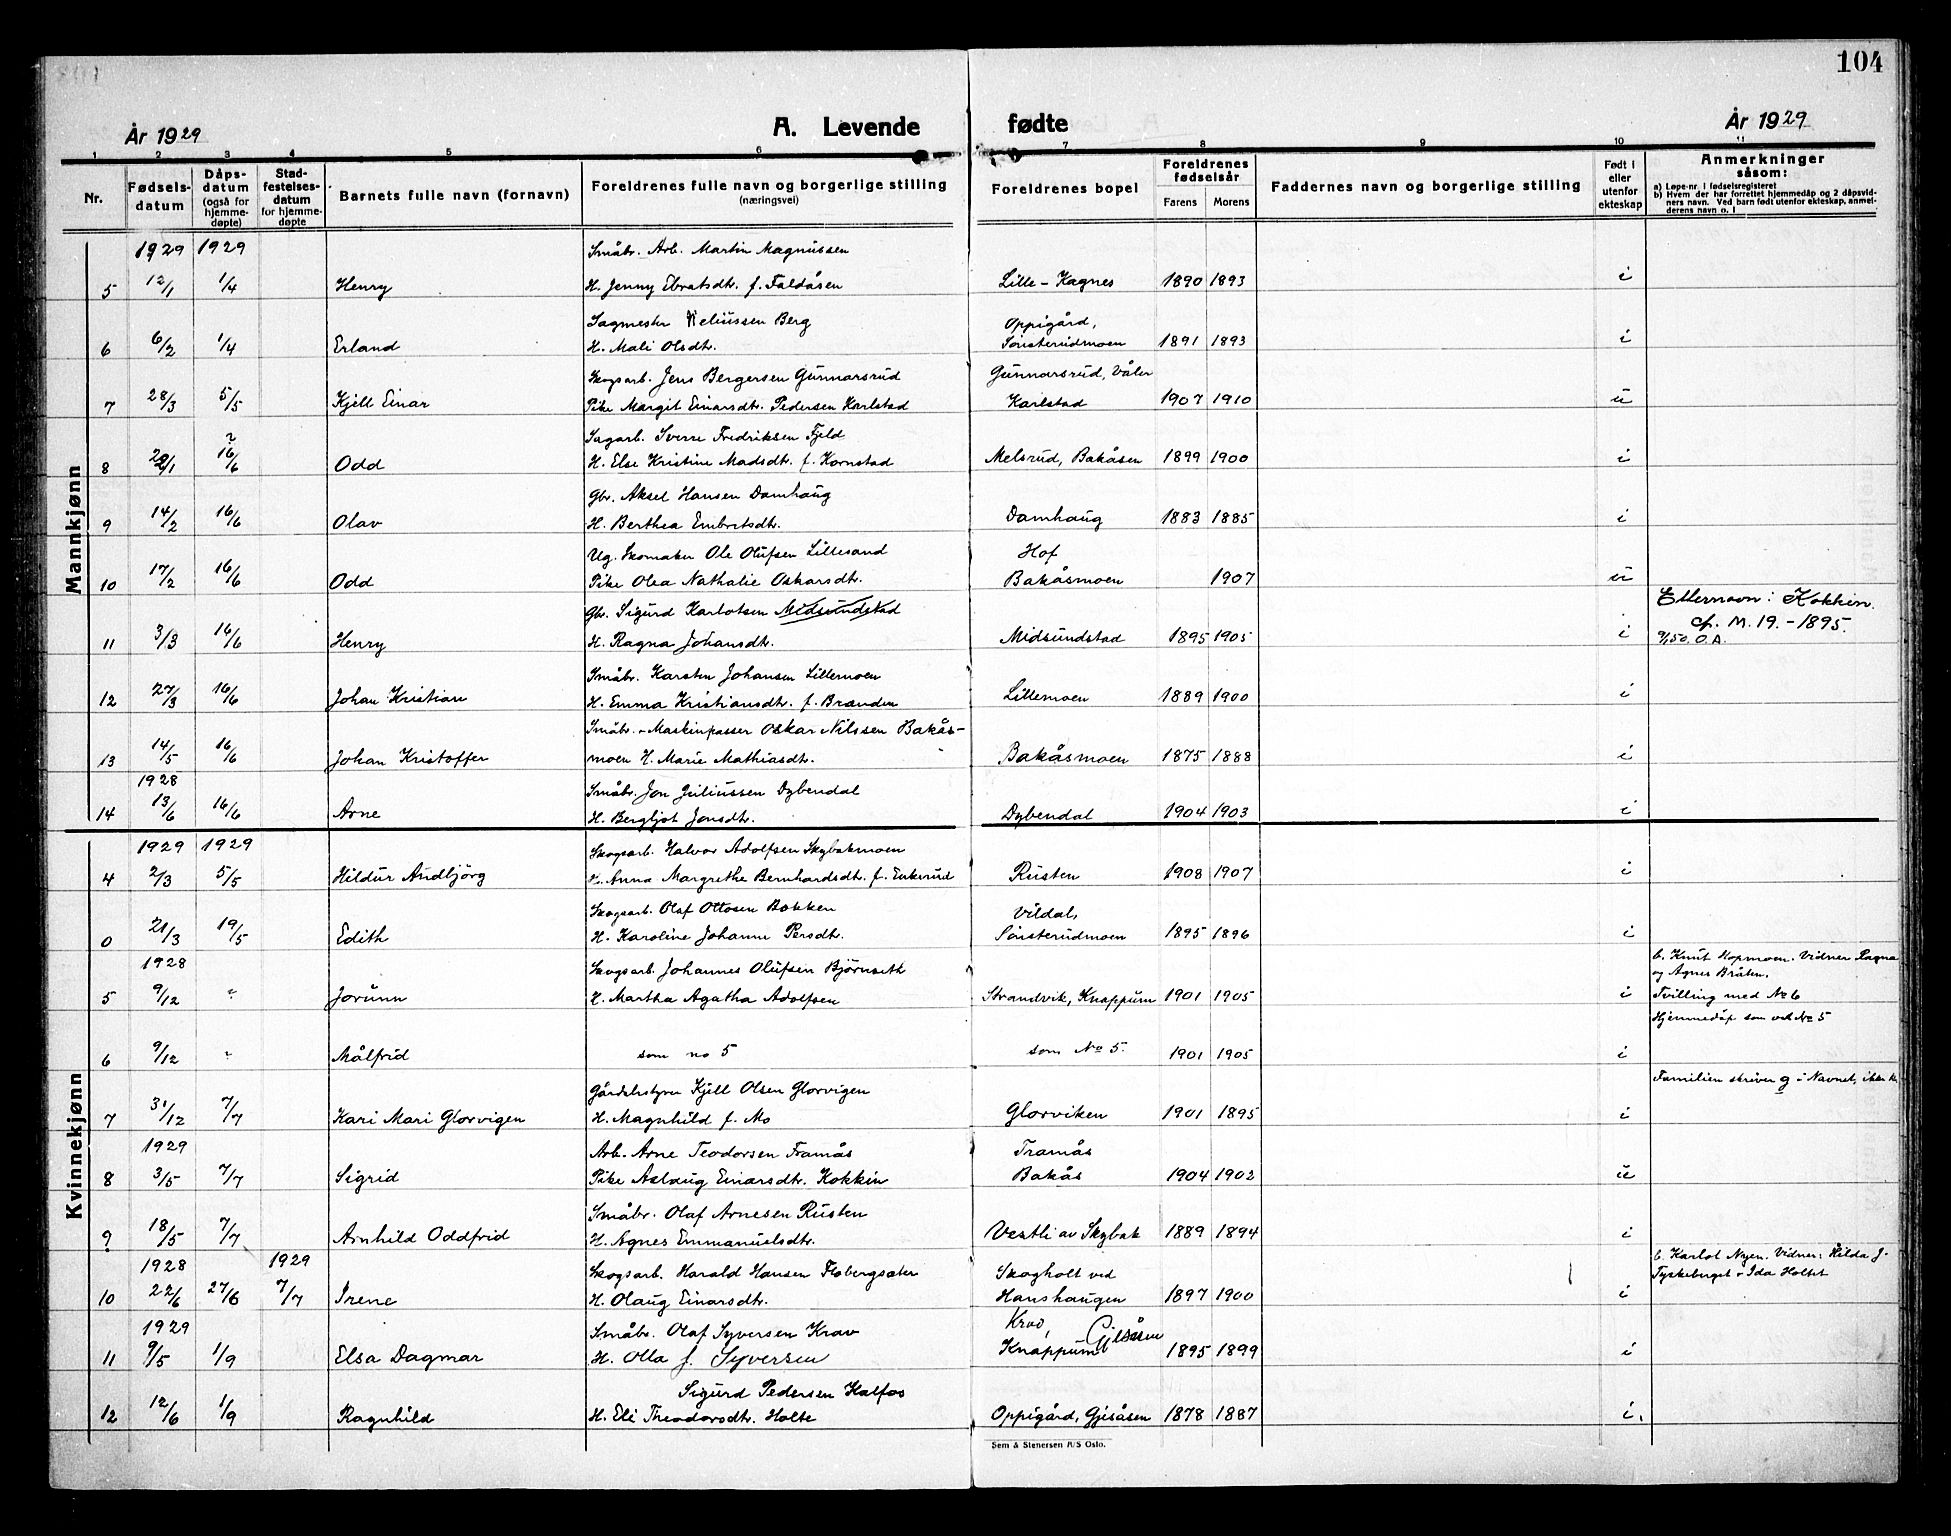 104
År 1929
A. Levende fødte
År 1929
1 2 3 4 5 6 7 8 9 10 11
Nr.
Fødsels-datum
Dåps-datum (også for hjemme-døpte)
Stad-festelses-datum for hjemme-døpte
Barnets fulle navn (fornavn)
Foreldrenes fulle navn og borgerlige stilling (næringsvei)
Foreldrenes bopel
Foreldrenes fødselsår
Farens Morens
Faddernes navn og borgerlige stilling
Født i eller utenfor ekteskap
Anmerkninger såsom:
a) Løpe-nr. i fødselsregisteret
b) Hvem der har forrettet hjemmedåp og 2 dåpsvid-
ners navn. Ved barn født utenfor ekteskap, anmel-
derens navn o. l
Mannkjønn
1929 1929 Småbr. Arb. Martin Magnussen
5 12/1 1/4 Henry H. Jenny Ebratsdtr. f. Faldåsen Lille-Kagnes 1890 1893 i
Sagmester Neliussen Berg Oppigård,
6 6/2 1/4 Erland H. Mali Olsdtr. Sønsterudmoen 1891 1893 i
Skogsarb. Jens Bergersen Gunnarsrud Gunnarsrud, Våler
7 28/3 5/5 Kjell Einar Pike Margit Einarsdtr. Pedersen Karlstad Karlstad 1907 1910 u
Sagarb. Sverre Fredriksen Fjeld
8 16/6 Odd H. Else Kristine Madsdtr. f. Kornstad Melsrud, Bakåsen 1899 1900 i
Gbr. Aksel Hansen Damhaug
9 14/2 16/6 Olav H. Berthea Embretsdtr. Damhaug 1883 1885 i
Ug. Skomaker Ole Olufsen Lillesand Hof
10 17/2 16/6 Odd Pike Olea Nathalie Oskarsdtr. Bakåsmoen 1907 u
Gbr. Sigurd Karlotsen Midsundstad Etternavn: Kokkin.
cfr. M. 19.-1895.
11 3/3 16/6 Henry H. Ragna Johansdtr. Midsundstad 1895 1905 i 9/1 50. O.A.
Småbr. Karsten Johansen Lillemoen
12 27/3 16/6 Johan Kristian H. Emma Kristiansdtr. f. Branden Lillemoen 1889 1900 i
Småbr. - Maskinpasser Oskar Nilssen Bakås-
13 14/5 16/6 Johan Kristoffer moen H. Marie Mathiasdtr. Bakåsmoen 1875 1888 i
1928 Småbr. Jon Juliussen Dybendal
14 13/6 16/6 Arne H. Bergljot Jonsdtr. Dybendal 1904 1903 i
Kvinnekjønn
1929 1929 Skogsarb. Halvor Adolfsen Skybakmoen
4 2/3 5/5 Hildur Audbjörg H. Anna Margrethe Bernhardsdtr. f. Enkerud Rusten 1908 1907 i
Skogsarb. Olaf Ottosen Bokken Vildal,
0 21/3 19/5 Edith H. Karoline Johanne Persdtr. Sønsterudmoen 1895 1896 i
1928 Skogsarb. Johannes Olufsen Bjørnseth b. Knut Hopmoen. Vidner Ragna
og Agnes Bråten.
5 9/12 ? Jorunn H. Martha Agatha Adolfsen Strandvik, Knappum 1901 1905 i Tvilling med No 6
Hjemmedåp som ved No 5
6 9/12 ? Målfrid som no 5 som No 5. 1901 1905 i
Gårdsbestyrer Kjell Olsen Glorvigen Familien skriver g i Navnet, ikke k.
7 31/12 7/7 Kari Mari Glorvigen H. Magnhild f. Mo Glorviken 1901 1895 i
1929 Arb. Arne Teodorsen Framås Tramås
8 3/5 7/7 Sigrid Pike Aslaug Einarsdtr. Kokkin Bakås 1904 1902 u
Småbr. Olaf Arnesen Rusten
9 18/5 7/7 Arnhild Oddfrid H. Agnes Emmanuelsdtr. Vestli av Skybak 1889 1894 i
1928 1929 Skogsarb. Harald Hansen Flobergsæter Skogholt ved b. Karlot Nyen. Vidner: Hilda J-
Tyskeberget - Ida Holtet
10 22/6 27/6 7/7 Irene H. Olaug Einarsdtr. Hanshaugen 1897 1900 i
1929 Småbr. Olaf Syversen Krav Krav,
11 9/5 1/9 Elsa Dagmar H. Olla f. Syversen Knappum Gjesåsen 1895 1899 i
Sigurd Pedersen Kalfos
12 12/6 1/9 Ragnhild H. Eli Theodorsdtr. Holte Oppigård, Gjesåsen 1878 1887 i.
Sem & Stenersen A/S Oslo.